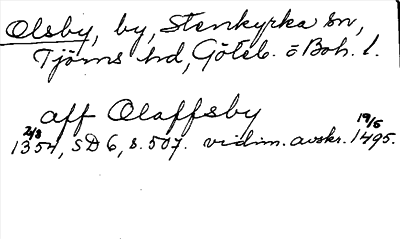 Olsby, by, Stenkyrka sn,
Tjörns hd, Göteb. o Boh. l.
aff Olaffsby
2/8 1354, SD 6, s. 507. vidim. avskr. 19/5 1495.